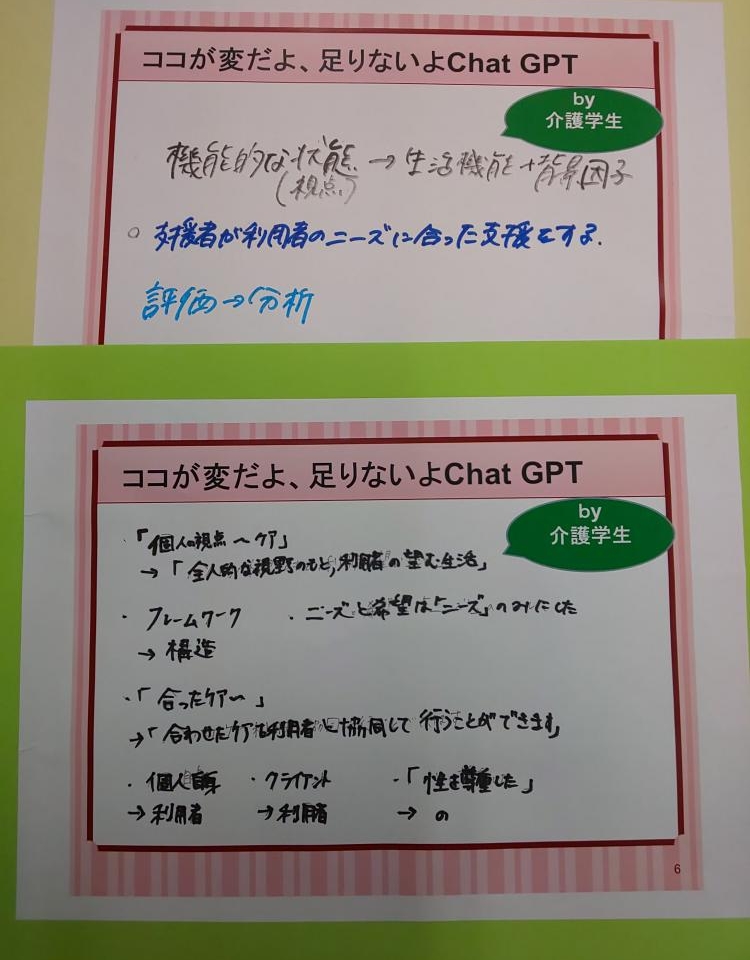 ココが変だよ、足りないよChat GPT
by
介護学生
機能的な状態 → 生活機能+背景因子
(視点)
○ 支援者が利用者のニーズに合った支援をする.
評価→分析
ココが変だよ、足りないよChat GPT
by
介護学生
・「個人の視点～ケア」
→「全人的な視野のもと,利用者の望む生活」
・フレームワーク ・ニーズと希望は「ニーズ」のみにした
→ 構造
・「合ったケア～」
→「合わせたケアを利用者と協同して行うことができます」
・個人自身 ・クライアント ・「性を尊重した」
→利用者 →利用者 → の
6